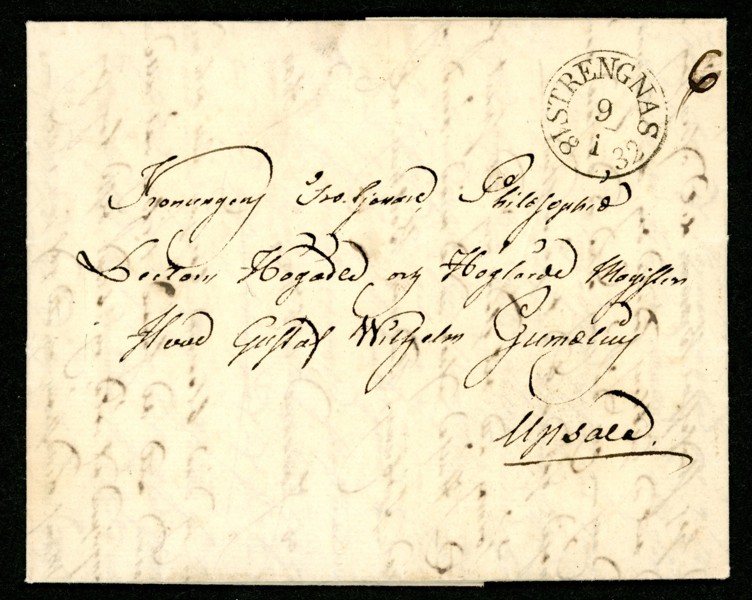 STRENGNÄS
9
1
1832
6
Konungens Tro-tjenare, Philosophiæ
Lectorn Högädle och Höglärde Magistern
Herr Gustaf Wilhelm Gumælius
Upsala.